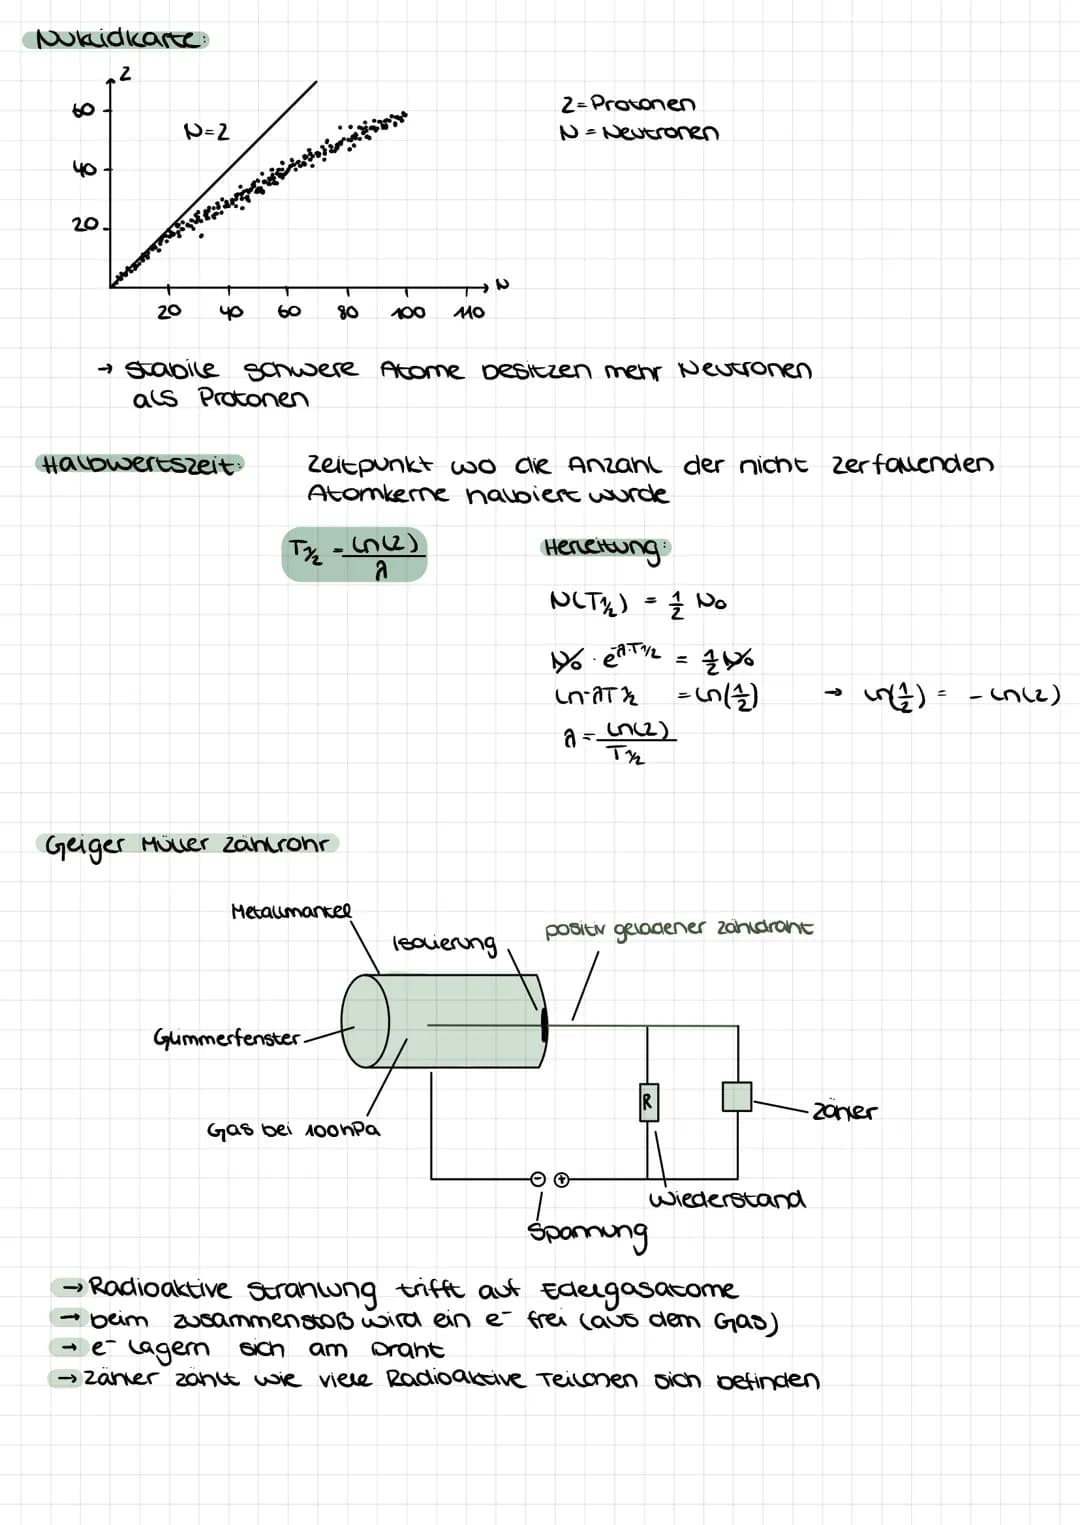 Nuklidkarte:
Z
60
40
20
N=Z
Z=Protonen
N = Neutronen
N
20 40 60 80 100 110
→ stabile schwere Atome besitzen mehr Neutronen
als Protonen
Halbwertszeit: Zeitpunkt wo die Anzahl der nicht zerfallenden
Atomkerne halbiert wurde
T½ = ln(2)/λ
Herleitung:
N(T½) = ½ N₀
N₀ · e^-λ·T1/2 = ½ N₀
ln-λT½ = ln(½) → ln(½) = - ln(2)
λ = ln(2)/T½
Geiger Müller Zählrohr
Metallmantel
Isolierung
positiv geladener Zähldraht
Glimmerfenster
R
Zähler
Gas bei 100hPa
⊖ ⊕
Wiederstand
Spannung
→ Radioaktive Strahlung trifft auf Edelgasatome
→ beim zusammenstoß wird ein e⁻ frei (aus dem Gas)
→ e⁻ lagern sich am Draht
→ Zähler zählt wie viele Radioaktive Teilchen sich befinden